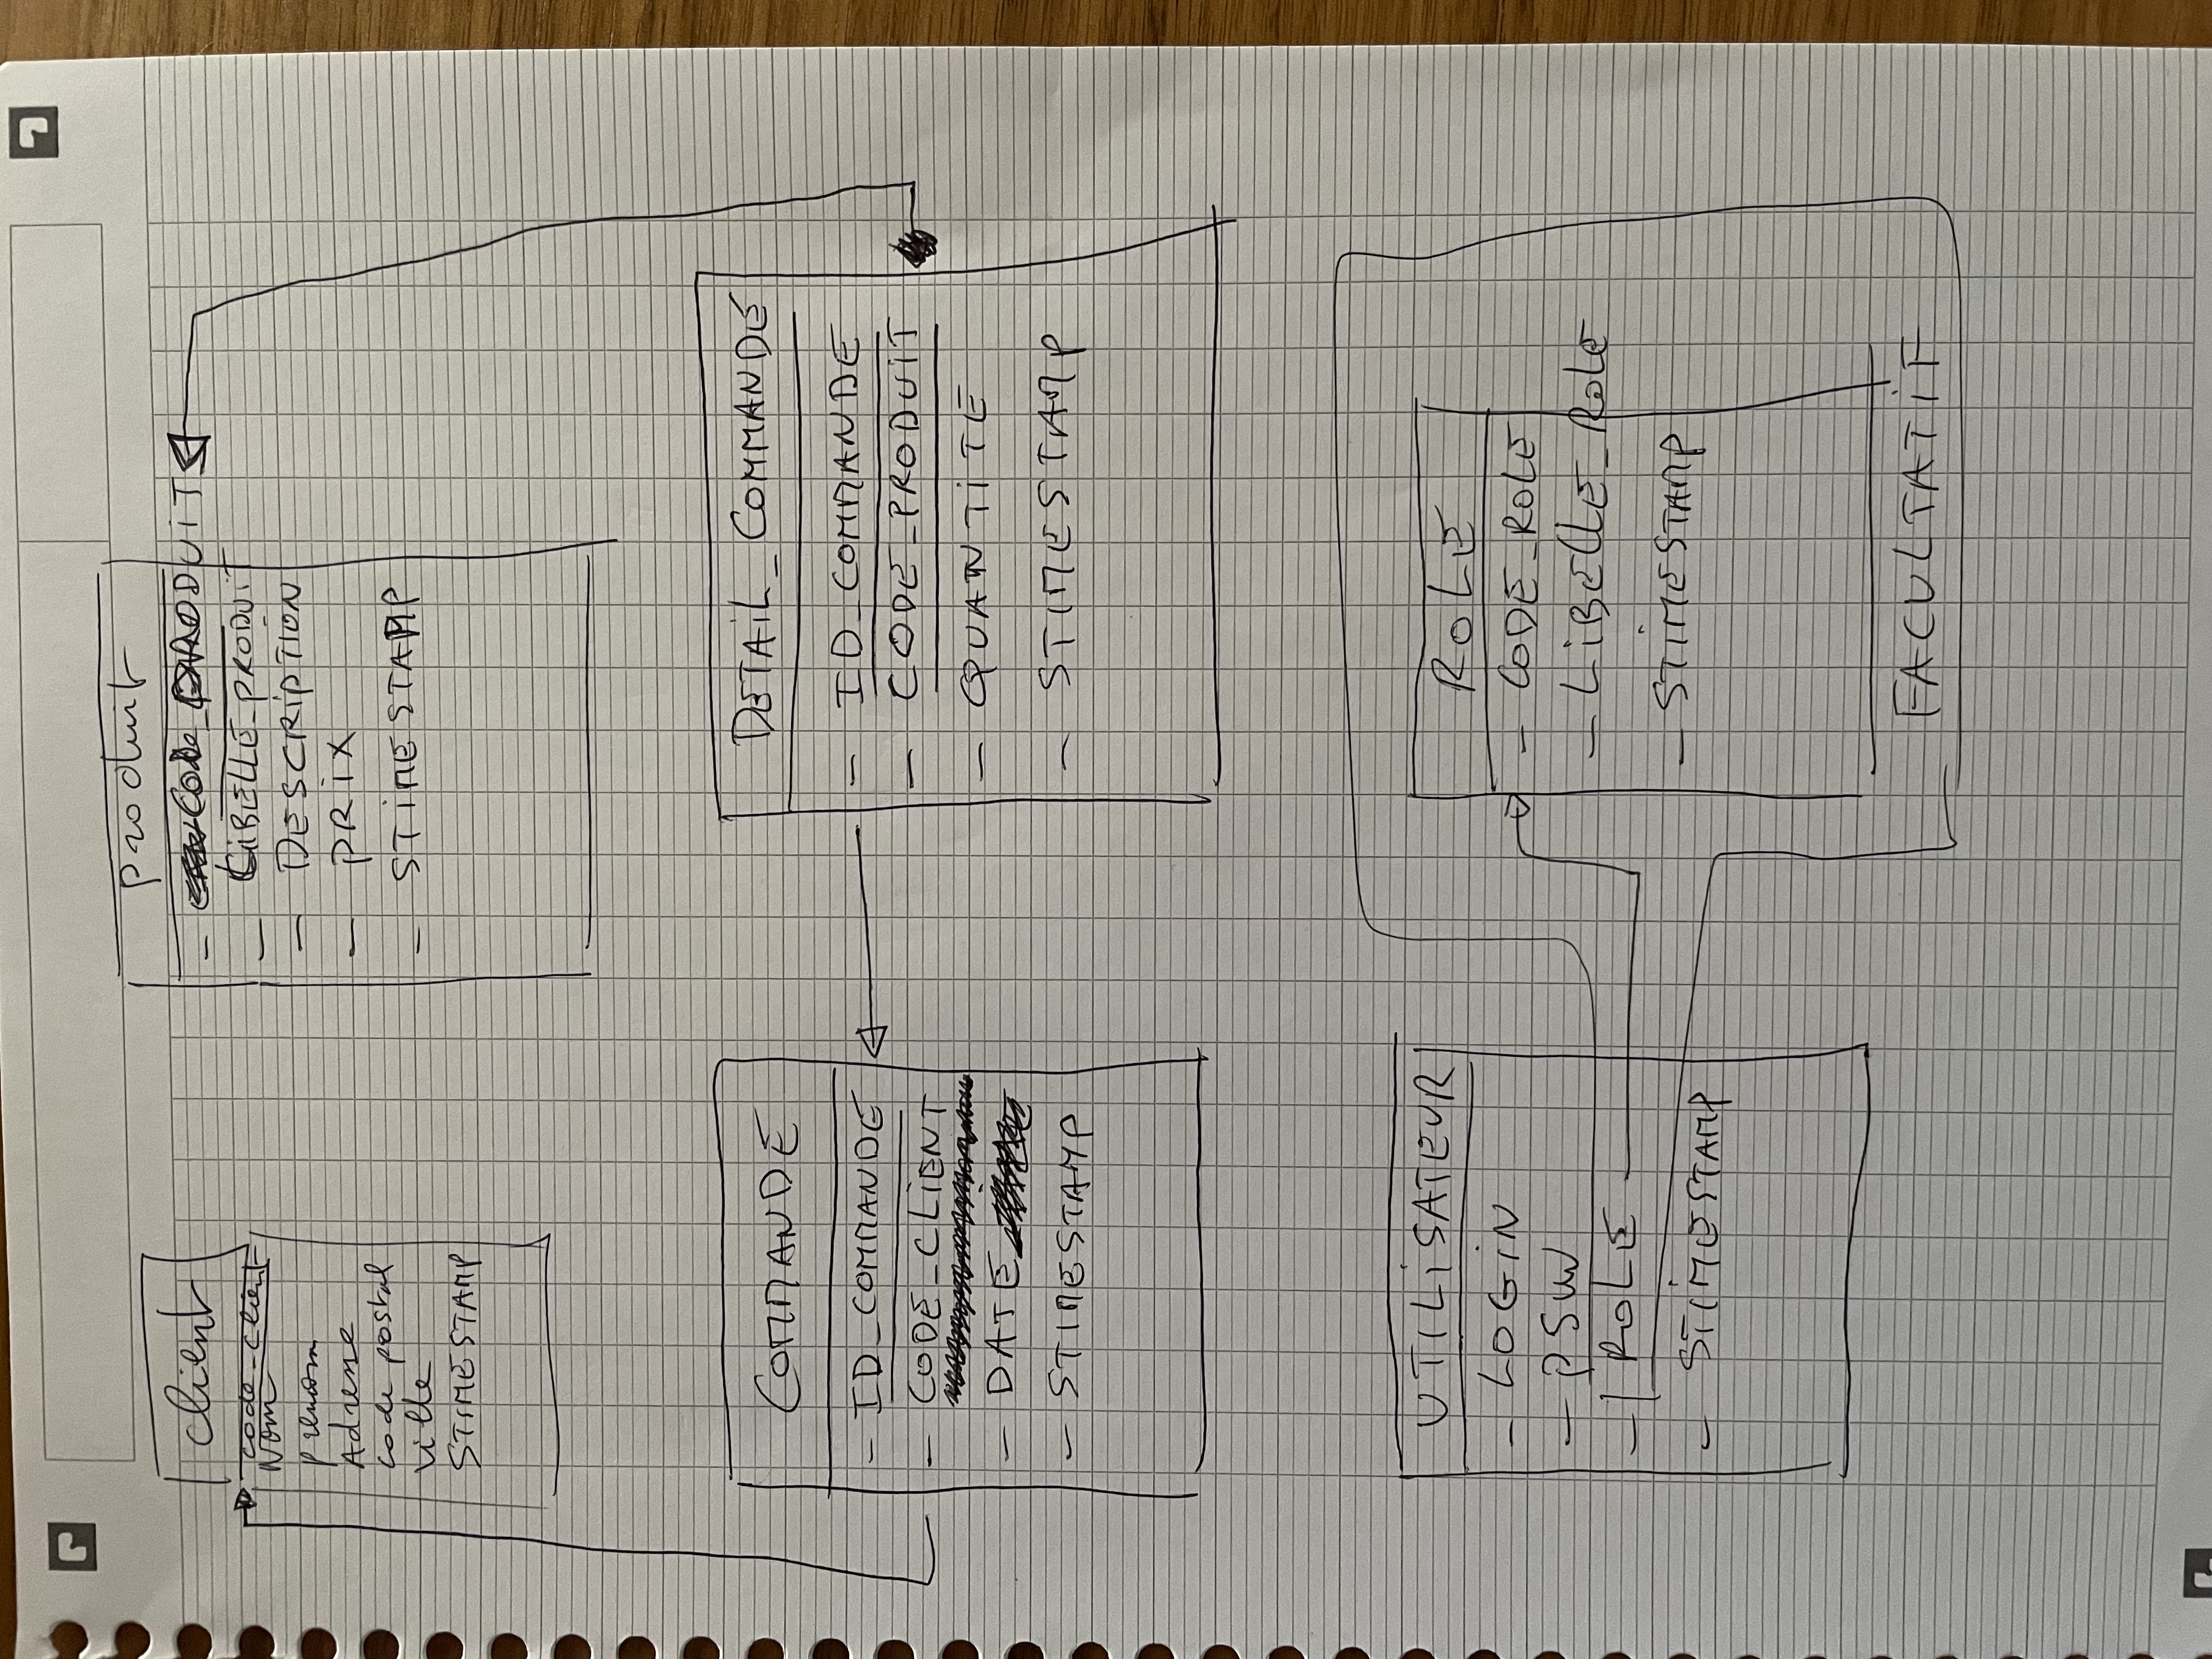 client
code_client
Nom
prenom
Adresse
code postal
ville
STIMESTAMP
produit
- Code_PRODUIT
- LIBELLE_PRODUIT
- DESCRIPTION
- PRIX
- STIMESTAMP
COMMANDE
- ID_COMMANDE
- CODE_CLIENT
- DATE
- STIMESTAMP
DETAIL_COMMANDE
- ID_COMMANDE
- CODE_PRODUIT
- QUANTITE
- STIMESTAMP
UTILISATEUR
- LOGIN
- PSW
- ROLE
- STIMESTAMP
ROLE
- CODE_ROLE
- LIBELLE_Role
- STIMESTAMP
FACULTATIF